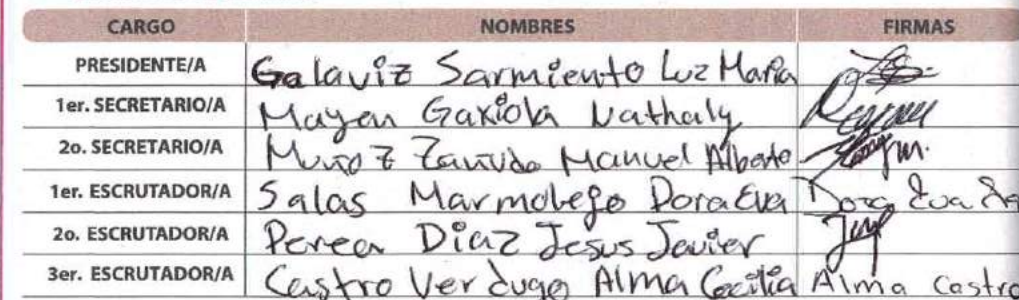 CARGO NOMBRES FIRMAS
PRESIDENTE/A Galaviz Sarmiento Luz Maria
1er. SECRETARIO/A Mayen Gaxiola Nathaly
2o. SECRETARIO/A Muñoz Zañudo Manuel Alberto
1er. ESCRUTADOR/A Salas Marmolejo Dora Eva Dora Eva
2o. ESCRUTADOR/A Perea Diaz Jesus Javier
3er. ESCRUTADOR/A Castro Verdugo Alma Cecilia Alma Castro